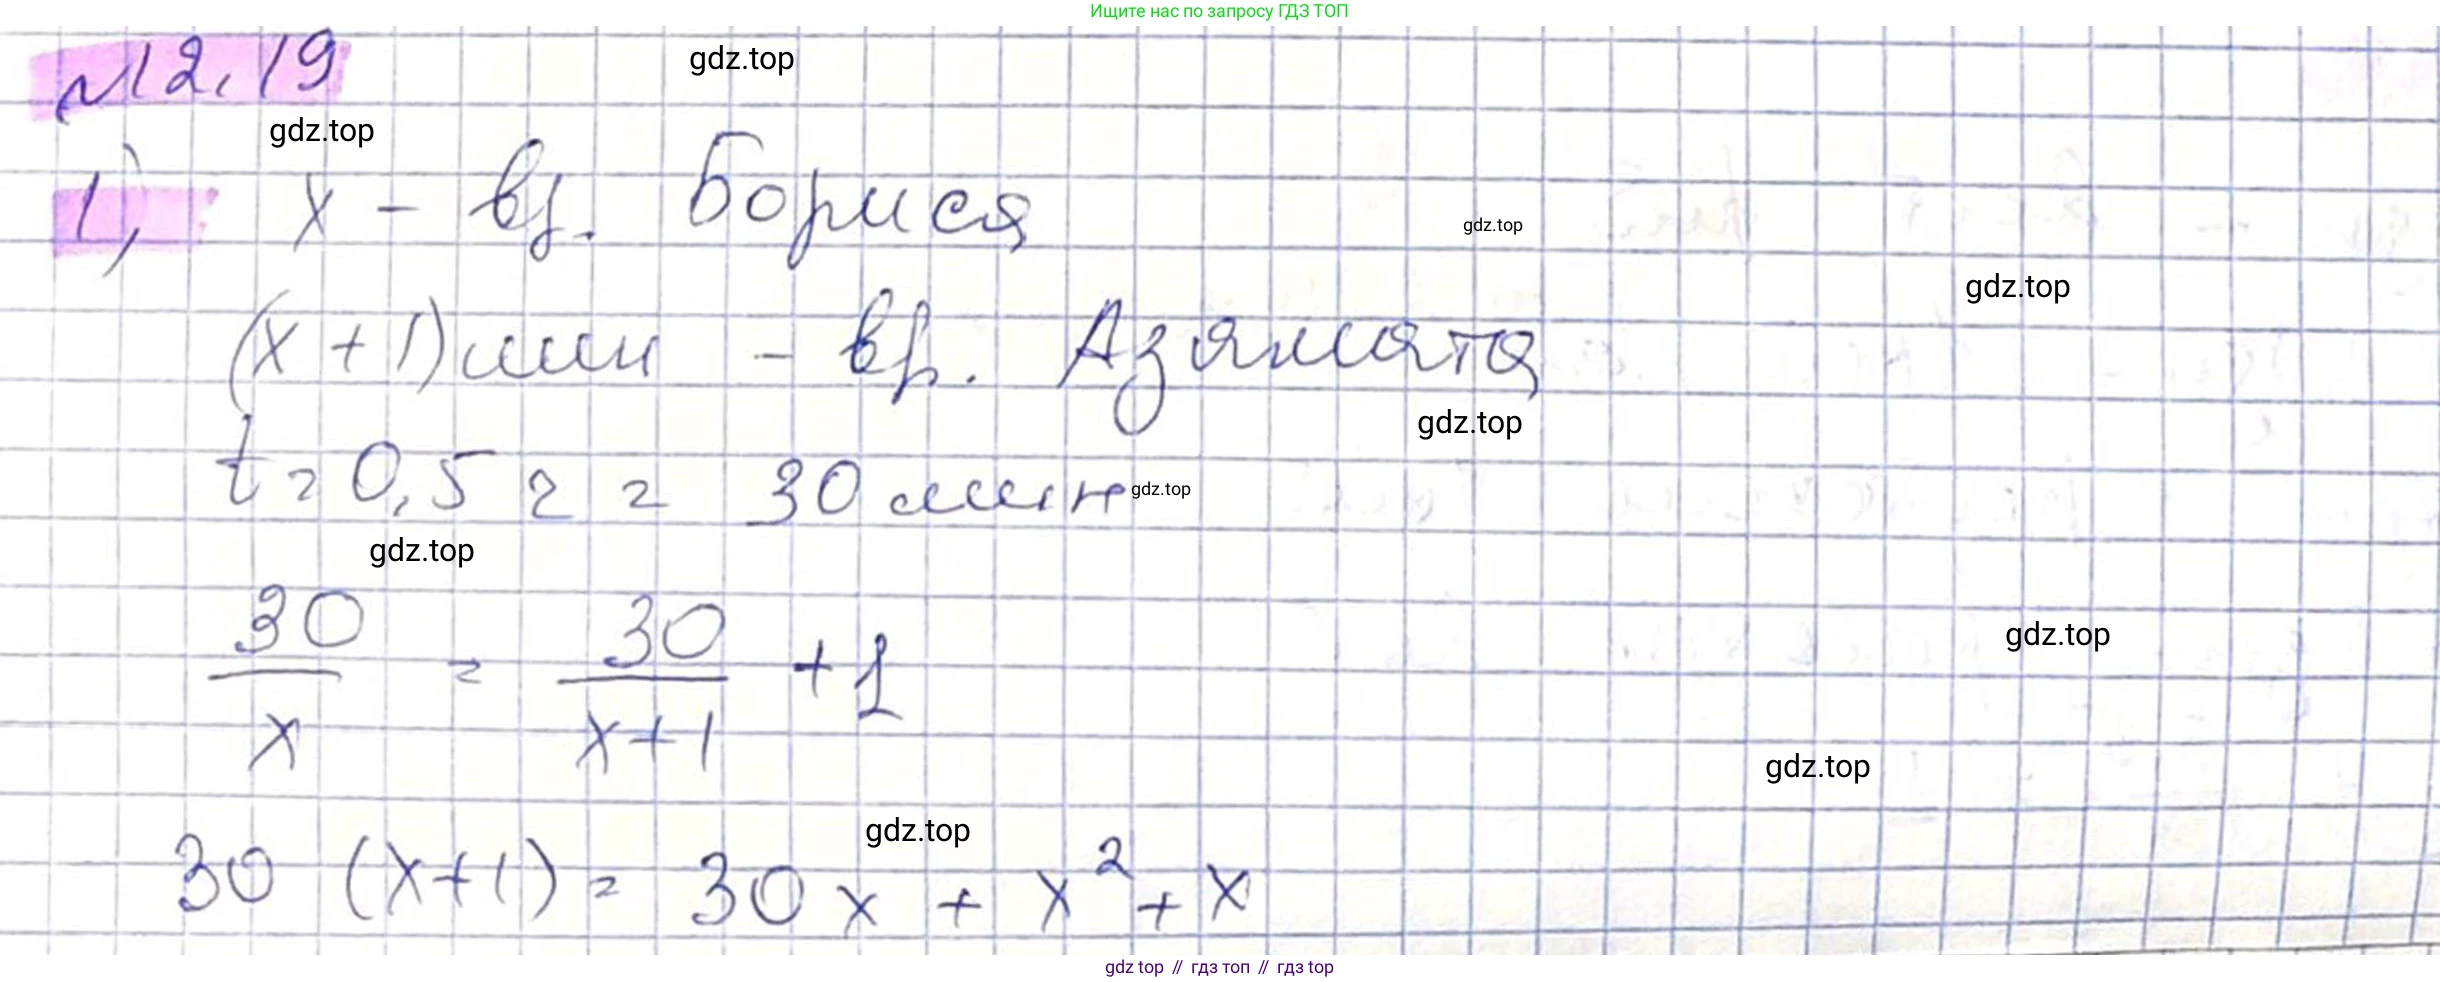 Ищите нас по запросу ГДЗ ТОП
№12.19
gdz.top
gdz.top
1) x - вр. Бориса
gdz.top
gdz.top
(x+1)мин - вр. Азамата
gdz.top
t = 0,5 ч = 30 мин
gdz.top
gdz.top
30/x = 30/(x+1) + 1
gdz.top
gdz.top
gdz.top
30 (x+1) = 30x + x² + x
gdz top // гдз топ // гдз top